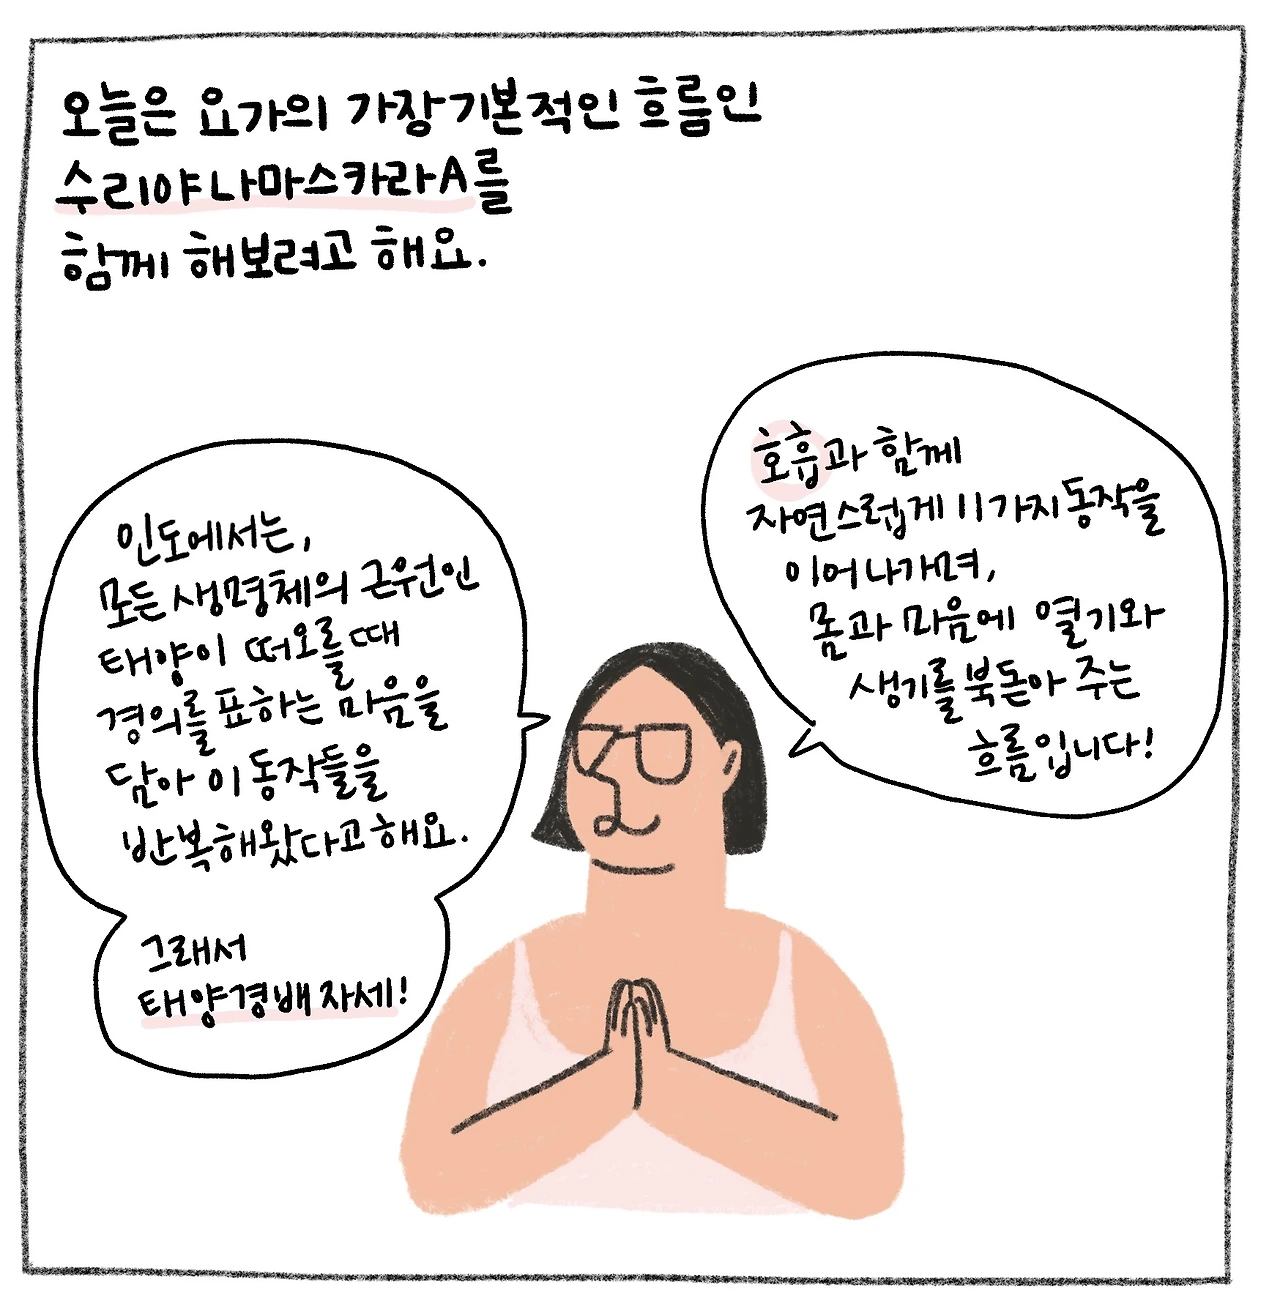 오늘은 요가의 가장 기본적인 흐름인
수리야 나마스카라A를
함께 해보려고 해요.
인도에서는,
모든 생명체의 근원인
태양이 떠오를 때
경의를 표하는 마음을
담아 이 동작들을
반복해왔다고 해요.
그래서
태양경배 자세!
호흡과 함께
자연스럽게 11가지 동작을
이어 나가며,
몸과 마음에 열기와
생기를 북돋아 주는
흐름입니다!